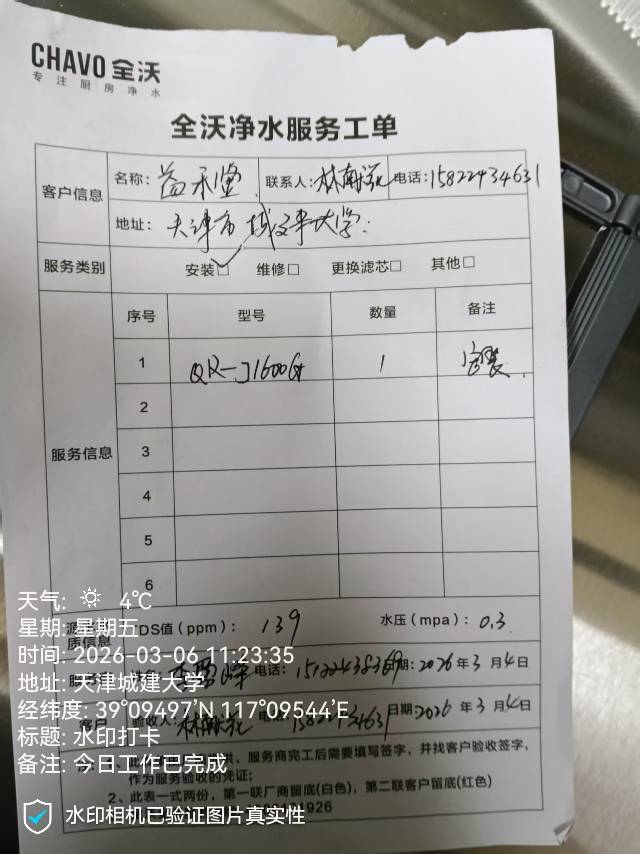 CHAVO 全沃
专注厨房净水
全沃净水服务工单
客户信息
名称: 益禾堂 联系人: 林献 电话: 15822434631
地址: 天津市城建大学
服务类别 安装□ 维修□ 更换滤芯□ 其他□
服务信息
序号 型号 数量 备注
1 QR-J1600G 1 安装
2
3
4
5
6
质信息 TDS值(ppm): 139 水压(mpa): 0.3
电话: 日期: 2026年3月4日
客户 验收人: 林献 日期: 2026年3月4日
服务商完工后需要填写签字,并找客户验收签字,
作为服务验收的凭证;
2、此表一式两份,第一联厂商留底(白色),第二联客户留底(红色)
1926
天气: 4℃
星期: 星期五
时间: 2026-03-06 11:23:35
地址: 天津城建大学
经纬度: 39°09497'N,117°09544'E
标题: 水印打卡
备注: 今日工作已完成
水印相机已验证图片真实性